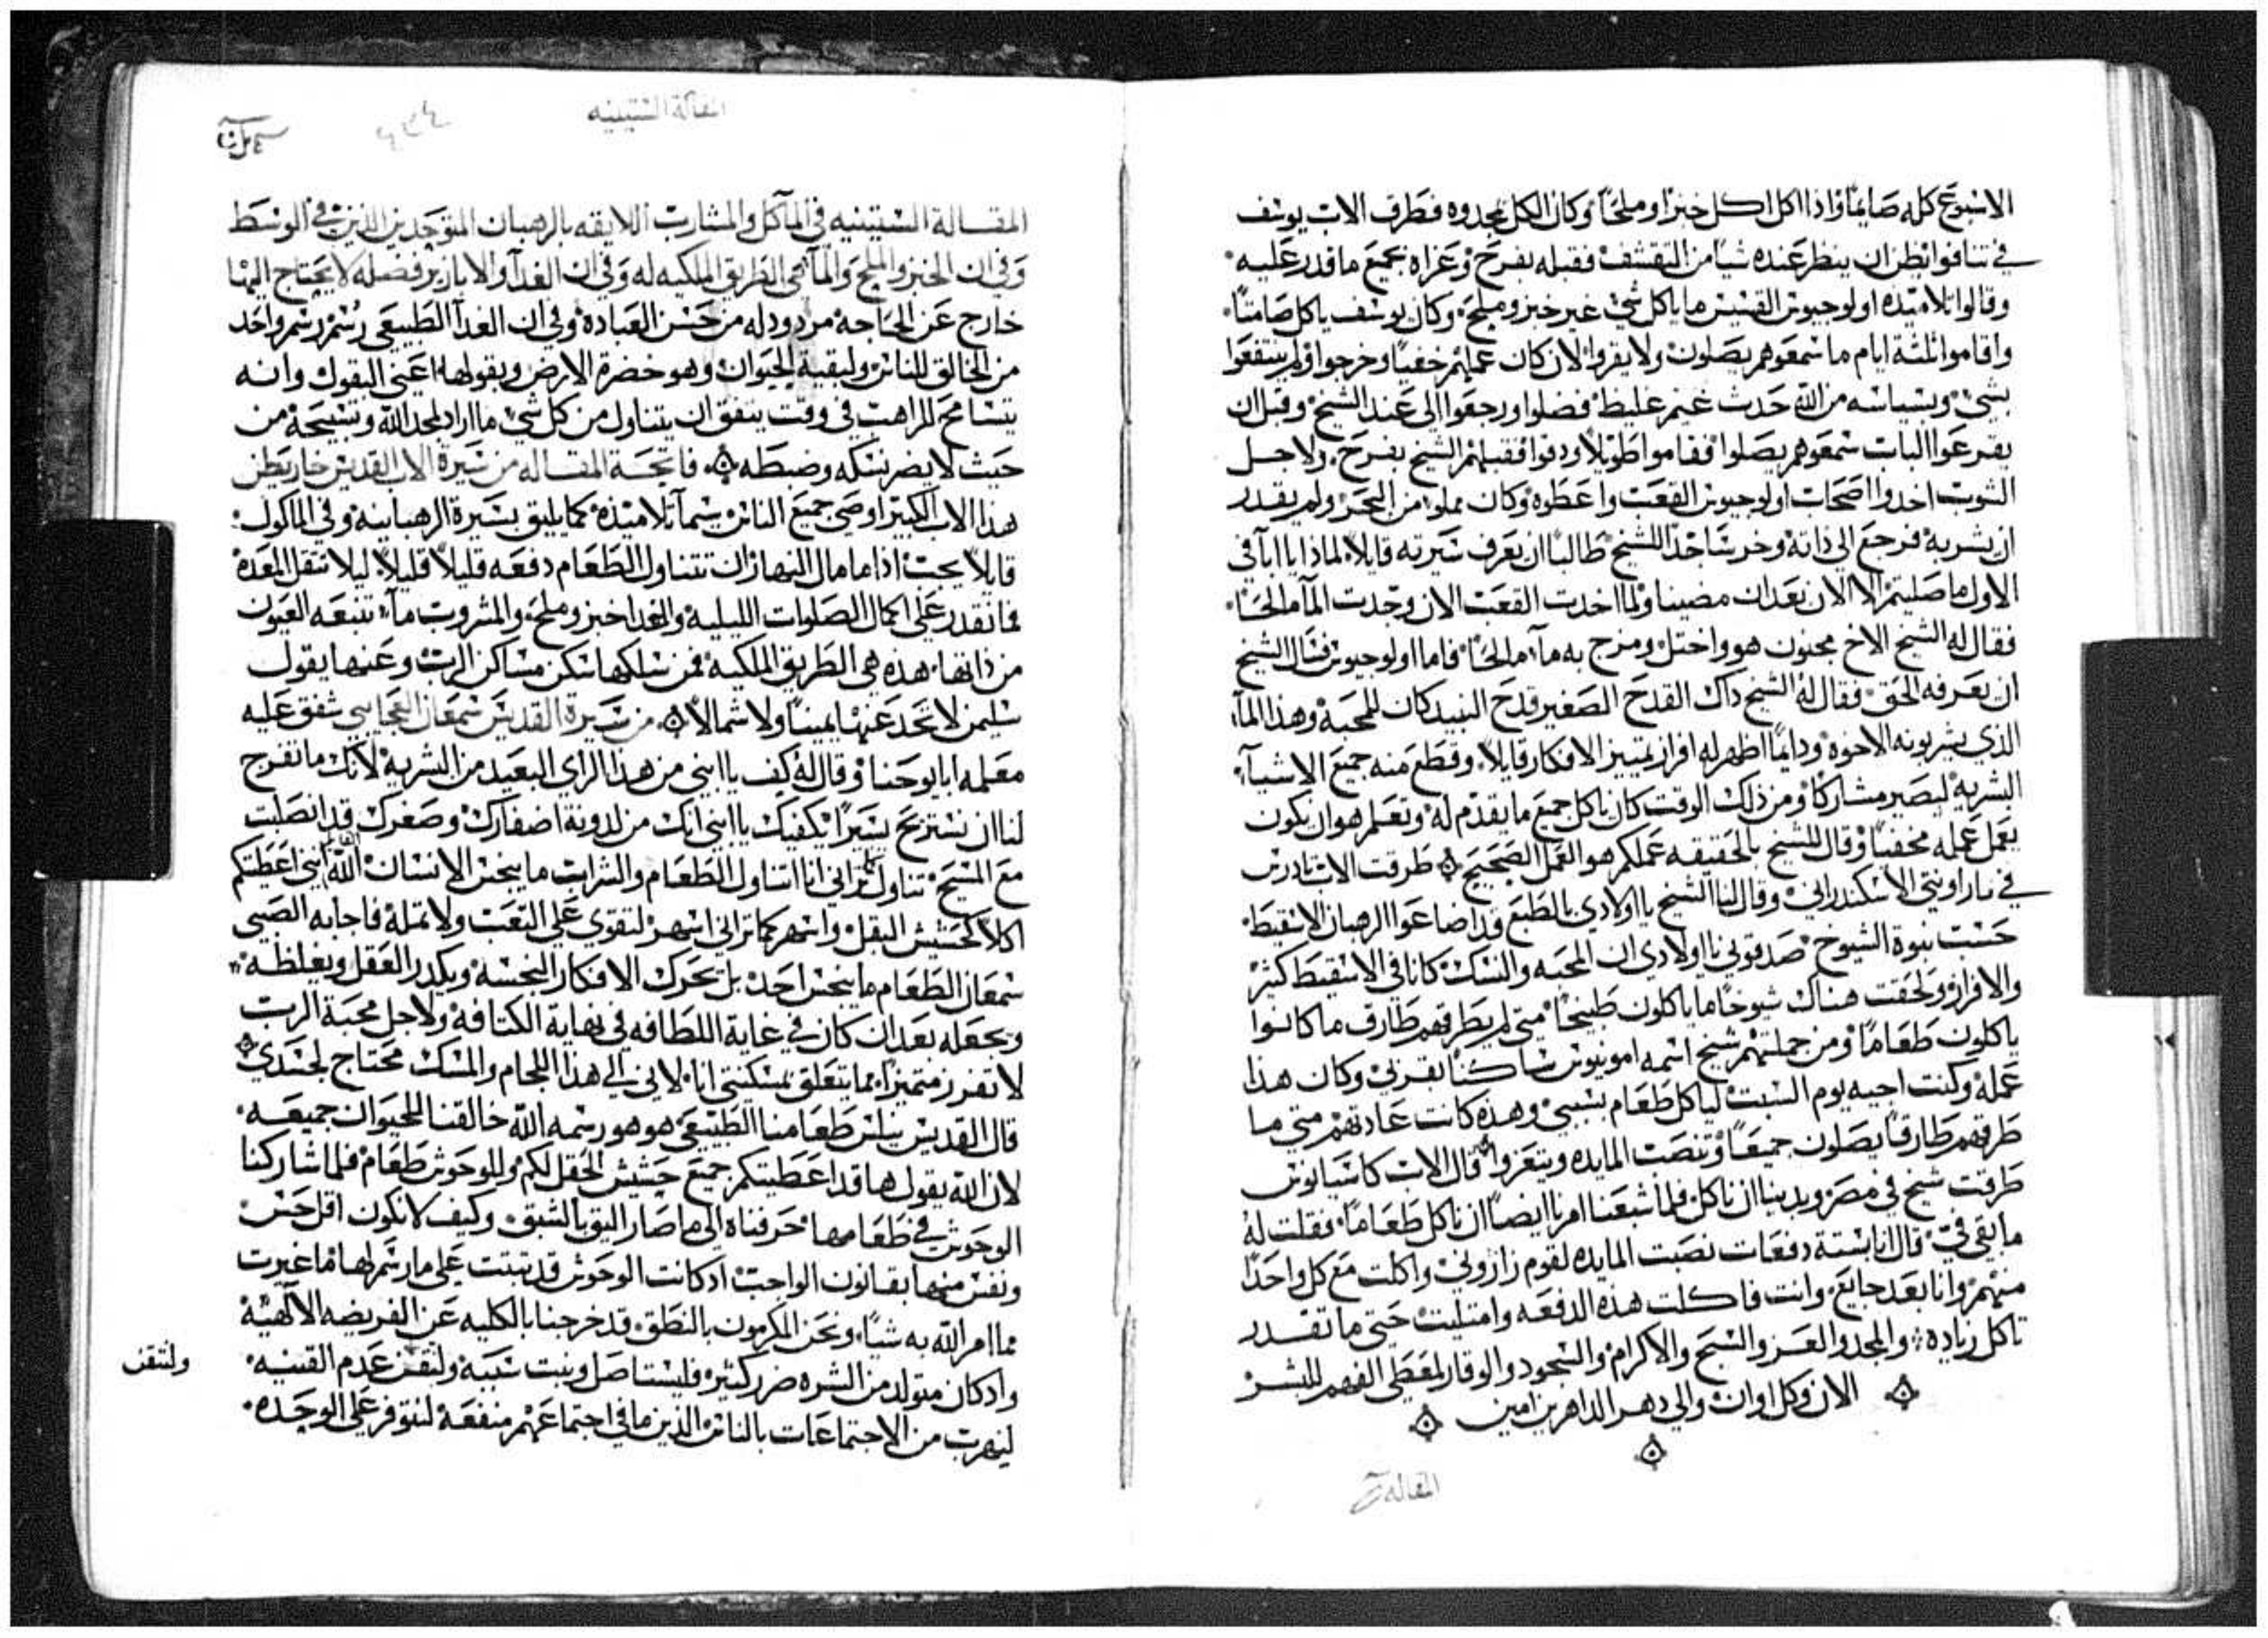 الاسبوع كله صايمًا واذا اكل اكل خبزًا وملحًا وكان الكل يمجدوه فطرق الاب يوسف
في تنافوا نظن ان ينظر عنده شيا من التقشف فقبله بفرح وعزاه بجميع ما قدر عليه
وقالوا تلاميذه اولوجيوس القسيس ما ياكل شي غير خبز وملح وكان يوسف ياكل صامتًا
واقاموا ثلثة ايام ما سمعوهم يصلون ولا يقروا لان كان عملهم خفيًا وخرجوا ولم ينتفعوا
بشي وبسياسه من الله حدث غيم غليظ فضلوا ورجعوا الى عند الشيخ وقبل ان
يقرعوا الباب سمعوهم يصلوا فقاموا طويلاً ودقوا فقبلهم الشيخ بفرح ولاجل
الشوب اخدوا اصحاب اولوجيوس القعب واعطوه وكان مملوا من البحر ولم يقدر
ان يشربه فرجع الى ذاته وخر ساجدًا للشيخ طالبًا ان يعرف سيرته قايلاً لماذا يا ابا في
الاول ما صليتم الا الان بعد ان مضينا ولما اخدت القعب الان وجدت المآ مالحًا
فقال له الشيخ الاخ مجنون هو واختل ومزج به مآ مالحًا فاما اولوجيوس فسال الشيخ
ان يعرفه الحق فقال له الشيخ داك القدح الصغير قدح النبيد كان للمحبة وهذا المآ
الذي يشربونه الاخوه ودايمًا اظهر له افراز تمييز الافكار قايلاً وقطع منه جميع الاشيآ
البشريه ليصير مشاركًا ومن ذلك الوقت كان ياكل جميع ما يقدم له وتعلم هو ان يكون
يعمل عمله مخفيًا وقال للشيخ بالحقيقه عملكم هو العمل الصحيح ۞ طرقت الاب تادرس
في ماراونتي الاسكندراني وقال لنا الشيخ يا اولادي بالطبع قد اضاعوا الرهبان الاسقيط
حسب نبوة الشيوخ صدقوني يا اولادي ان المحبه والنسك كانا في الاسقيط كثير
والافراز ولحقت هناك شيوخًا ما ياكلون طبيخًا متى لم يطرقهم طارق ما كانوا
ياكلون طعامًا ومن جملتهم شيخ اسمه امونيوس ساكنًا بقربي وكان هذا
عمله وكنت اجيه يوم السبت لياكل طعام بسببي وهذه كانت عادتهم متى ما
طرقهم طارقًا يصلون جميعًا وتنصب المايده ويتعزوا قال الاب كاسيانوس
طرقت شيخ في مصر وبدينا ان ناكل فلما شبعنا امرنا ايضًا ان ناكل طعامًا فقلت له
ما بقي فيّ قال انا بستة دفعات نصبت المايده لقوم زاروني واكلت مع كل واحدًا
منهم وانا بعد جايع وانت فاكلت هذه الدفعه وامتليت حتى ما تقدر
تاكل زياده والمجد والعز والسبح والاكرام والسجود والوقار لمعطي الفهم للبشر
الان وكل اوان والى دهر الداهرين امين
المقاله
المقالة الستينيه
٤٣٤
المقالة الستينيه في المآكل والمشارب اللايقه بالرهبان المتوحدين الذين في الوسط
وفي ان الخبز والملح والمآ هي الطريق الملكيه له وفي ان الغدآ والابازير فضله لا يحتاج اليها
خارج عن الحاجة مردودله من حسن العبادة وفي ان الغدآ الطبيعي رسم رسم واحد
من الخالق للناس ولبقية الحيوان وهو خضرة الارض وبقولها اعني البقول وانه
يتسامح الراهب في وقت يتفق ان يتناول من كل شي ما اراد لمجد الله وتسبيحة من
حيث لا يضر نسكه وضبطه ۞ فاتحة المقاله من سيرة الاب القديس خاريطن
هذا الاب الكبير اوصى جميع الناس سيمآ تلاميذه كما يليق بسيرة الرهبانيه وفي الماكول
قايلاً يجب اذا ما مال النهار ان تتناول الطعام دفعه قليلاً قليلاً ليلا تثقل المعده
فما نقدر على اكمال الصلوات الليليه والغدا خبز وملح والمشروب مآ تنبعه العيون
من ذاتها هذه هي الطريق الملكيه فمن سلكها سكن مساكن الرب وعنها يقول
سليمن لا تحد عنها يمينًا ولا شمالاً ۞ من سيرة القديس سمعان العجايبي شفق عليه
معلمه ابا يوحنا وقال له كيف يا ابني من هذا الراي البعيد من البشريه لانك ما تفرج
لنا ان نستريح يسيرًا يكفيك يا ابني انك من لدونة اضفارك وصغرك قد انصلبت
مع المسيح تناول كما تراني انا اتناول الطعام والشراب ما ينجس الانسان الله يقول اني اعطيتكم
اكلاً كحشيش البقل واسهر كما تراني اسهر لتقوى على التعب ولا تمله فاجابه الصبي
سمعان الطعام ما ينجس احد بل يحرك الافكار النجسه ويكدر العقل ويغلظه
ويجعله بعد ان كان في غاية اللطافه في نهاية الكثافه ولاجل محبة الرب
لا تفرز متميزًا بما يتعلق بمسكنتي انا لاني الى هذا اللجام والمسك محتاج لجسدي ۞
قال القديس نيلس طعامنا الطبيعي هو هو رسمه الله خالقنا للحيوان جميعه
لان الله يقول ها قد اعطيتكم جميع حشيش الحقل لكم وللوحوش طعام فلما شاركنا
الوحوش في طعامها حرفناه الى ما صار اليق بالشبق وكيف لا نكون اقل حس
ونفس منها بقانون الواجب اد كانت الوحوش قد تبتت على ما رسم لها ما غيرت
مما امر الله به شيًا ونحن المكرمون بالنطق قد خرجنا بالكليه عن الفريضه الالهية
واد كان متولد من الشره ضرر كثير فليستاصل ونبت سببه ولتقن عدم القنيه
لنهرب من الاجتماعات بالناس الذين ما في اجتماعهم منفعة لنتوفر على الوحده
ولنقن